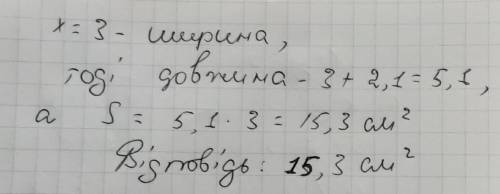 x = 3 - ширина,
тоді довжина - 3 + 2,1 = 5,1,
а S = 5,1 · 3 = 15,3 см²
Відповідь: 15,3 см²